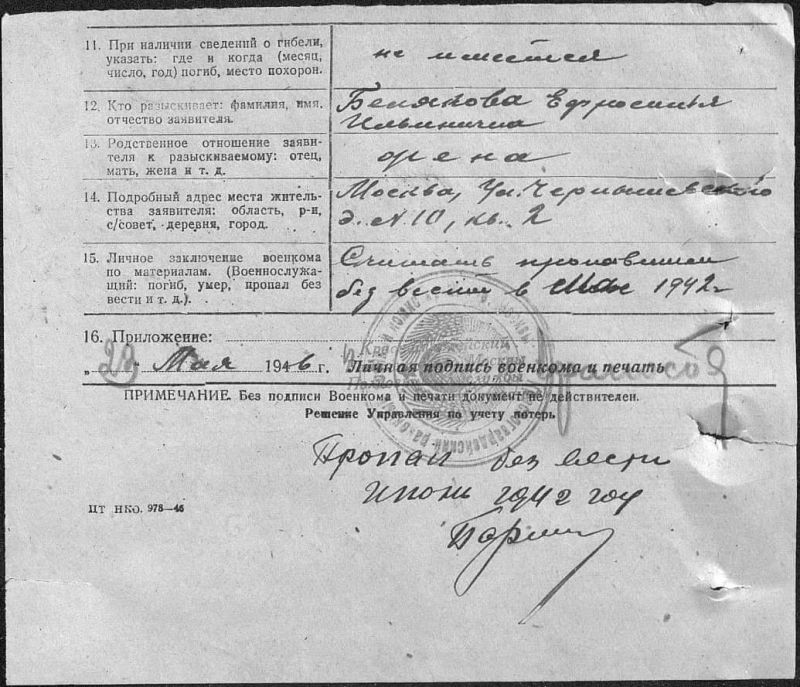 11. При наличии сведений о гибели, указать: где и когда (месяц, число, год) погиб, место похорон.
не имеется
12. Кто разыскивает: фамилия, имя, отчество заявителя.
Белякова Ефросинья
Ильинична
13. Родственное отношение заявителя к разыскиваемому: отец, мать, жена и т. д.
жена
14. Подробный адрес места жительства заявителя: область, р-н, с/совет, деревня, город.
Москва, Ул. Чернышевского
д. № 10, кв. 2
15. Личное заключение военкома по материалам. (Военнослужащий: погиб, умер, пропал без вести и т. д.).
Считать пропавшим
без вести в Мае 1942 г
16. Приложение:
„28" Мая 1946 г.
Личная подпись военкома и печать
ПРИМЕЧАНИЕ. Без подписи Военкома и печати документ не действителен.
Решение Управления по учету потерь
Пропал без вести
Июнь 1942 год
ЦТ НКО. 978—46